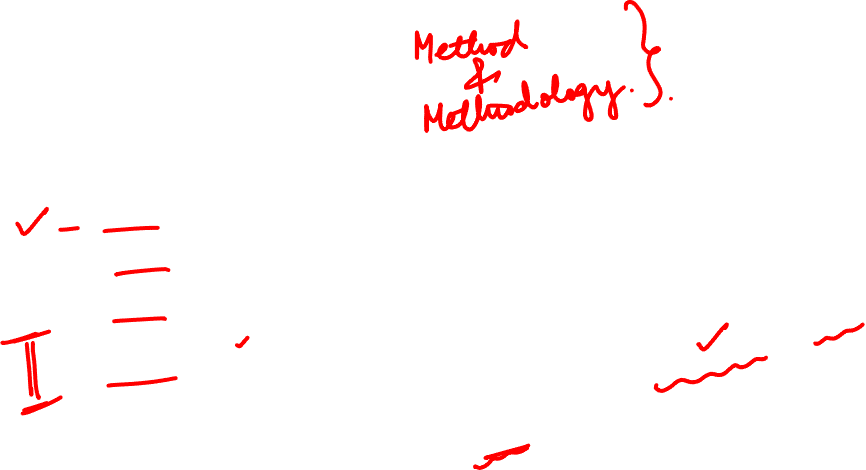 Method
&
Methodology.
II